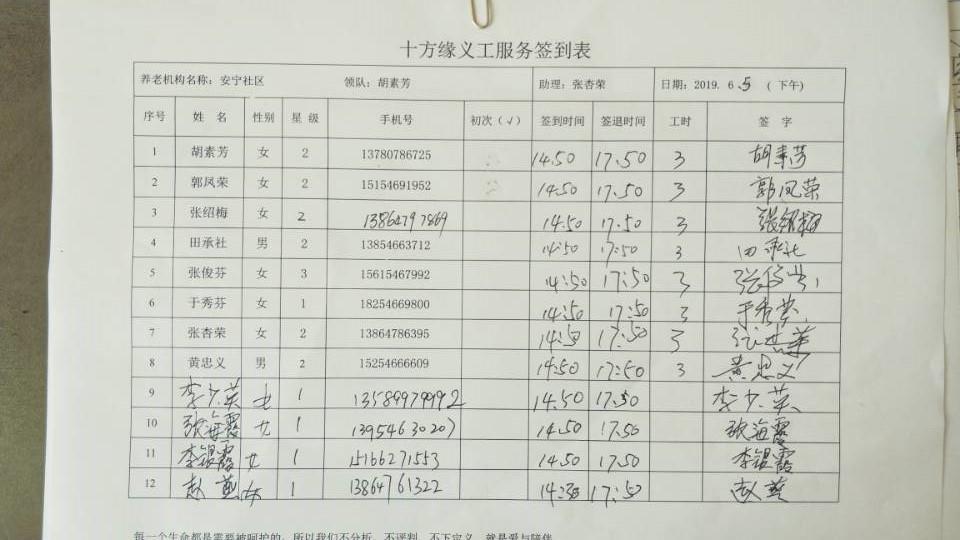 十方缘义工服务签到表
养老机构名称：安宁社区 领队：胡素芳 助理：张杏荣 日期：2019. 6.5 （下午）
序号 姓 名 性别 星 级 手机号 初次（√） 签到时间 签退时间 工时 签 字
1 胡素芳 女 2 13780786725 14.50 17.50 3 胡素芳
2 郭凤荣 女 2 15154691952 14:50 17.50 3 郭凤荣
3 张绍梅 女 2 13864797869 14:50 17:50 3 张绍梅
4 田承社 男 2 13854663712 14:50 17:50 3 田承社
5 张俊芬 女 3 15615467992 14:50 17:50 3
6 于秀芬 女 1 18254669800 14:50 17:50 3
7 张杏荣 女 2 13864786395 14:50 17:50 3
8 黄忠义 男 2 15254666609 14:50 17:50 3 黄忠义
9 李少英 女 1 13589979992 14.50 17.50 李少英
10 张海霞 女 1 13954630207 14.50 17.50 张海霞
11 李银霞 女 1 15166271553 14.50 17.50 李银霞
12 赵燕 女 1 13864761322 17:50 赵燕
每一个生命都是需要被呵护的，所以我们不分析、不评判、不下定义，就是爱与陪伴